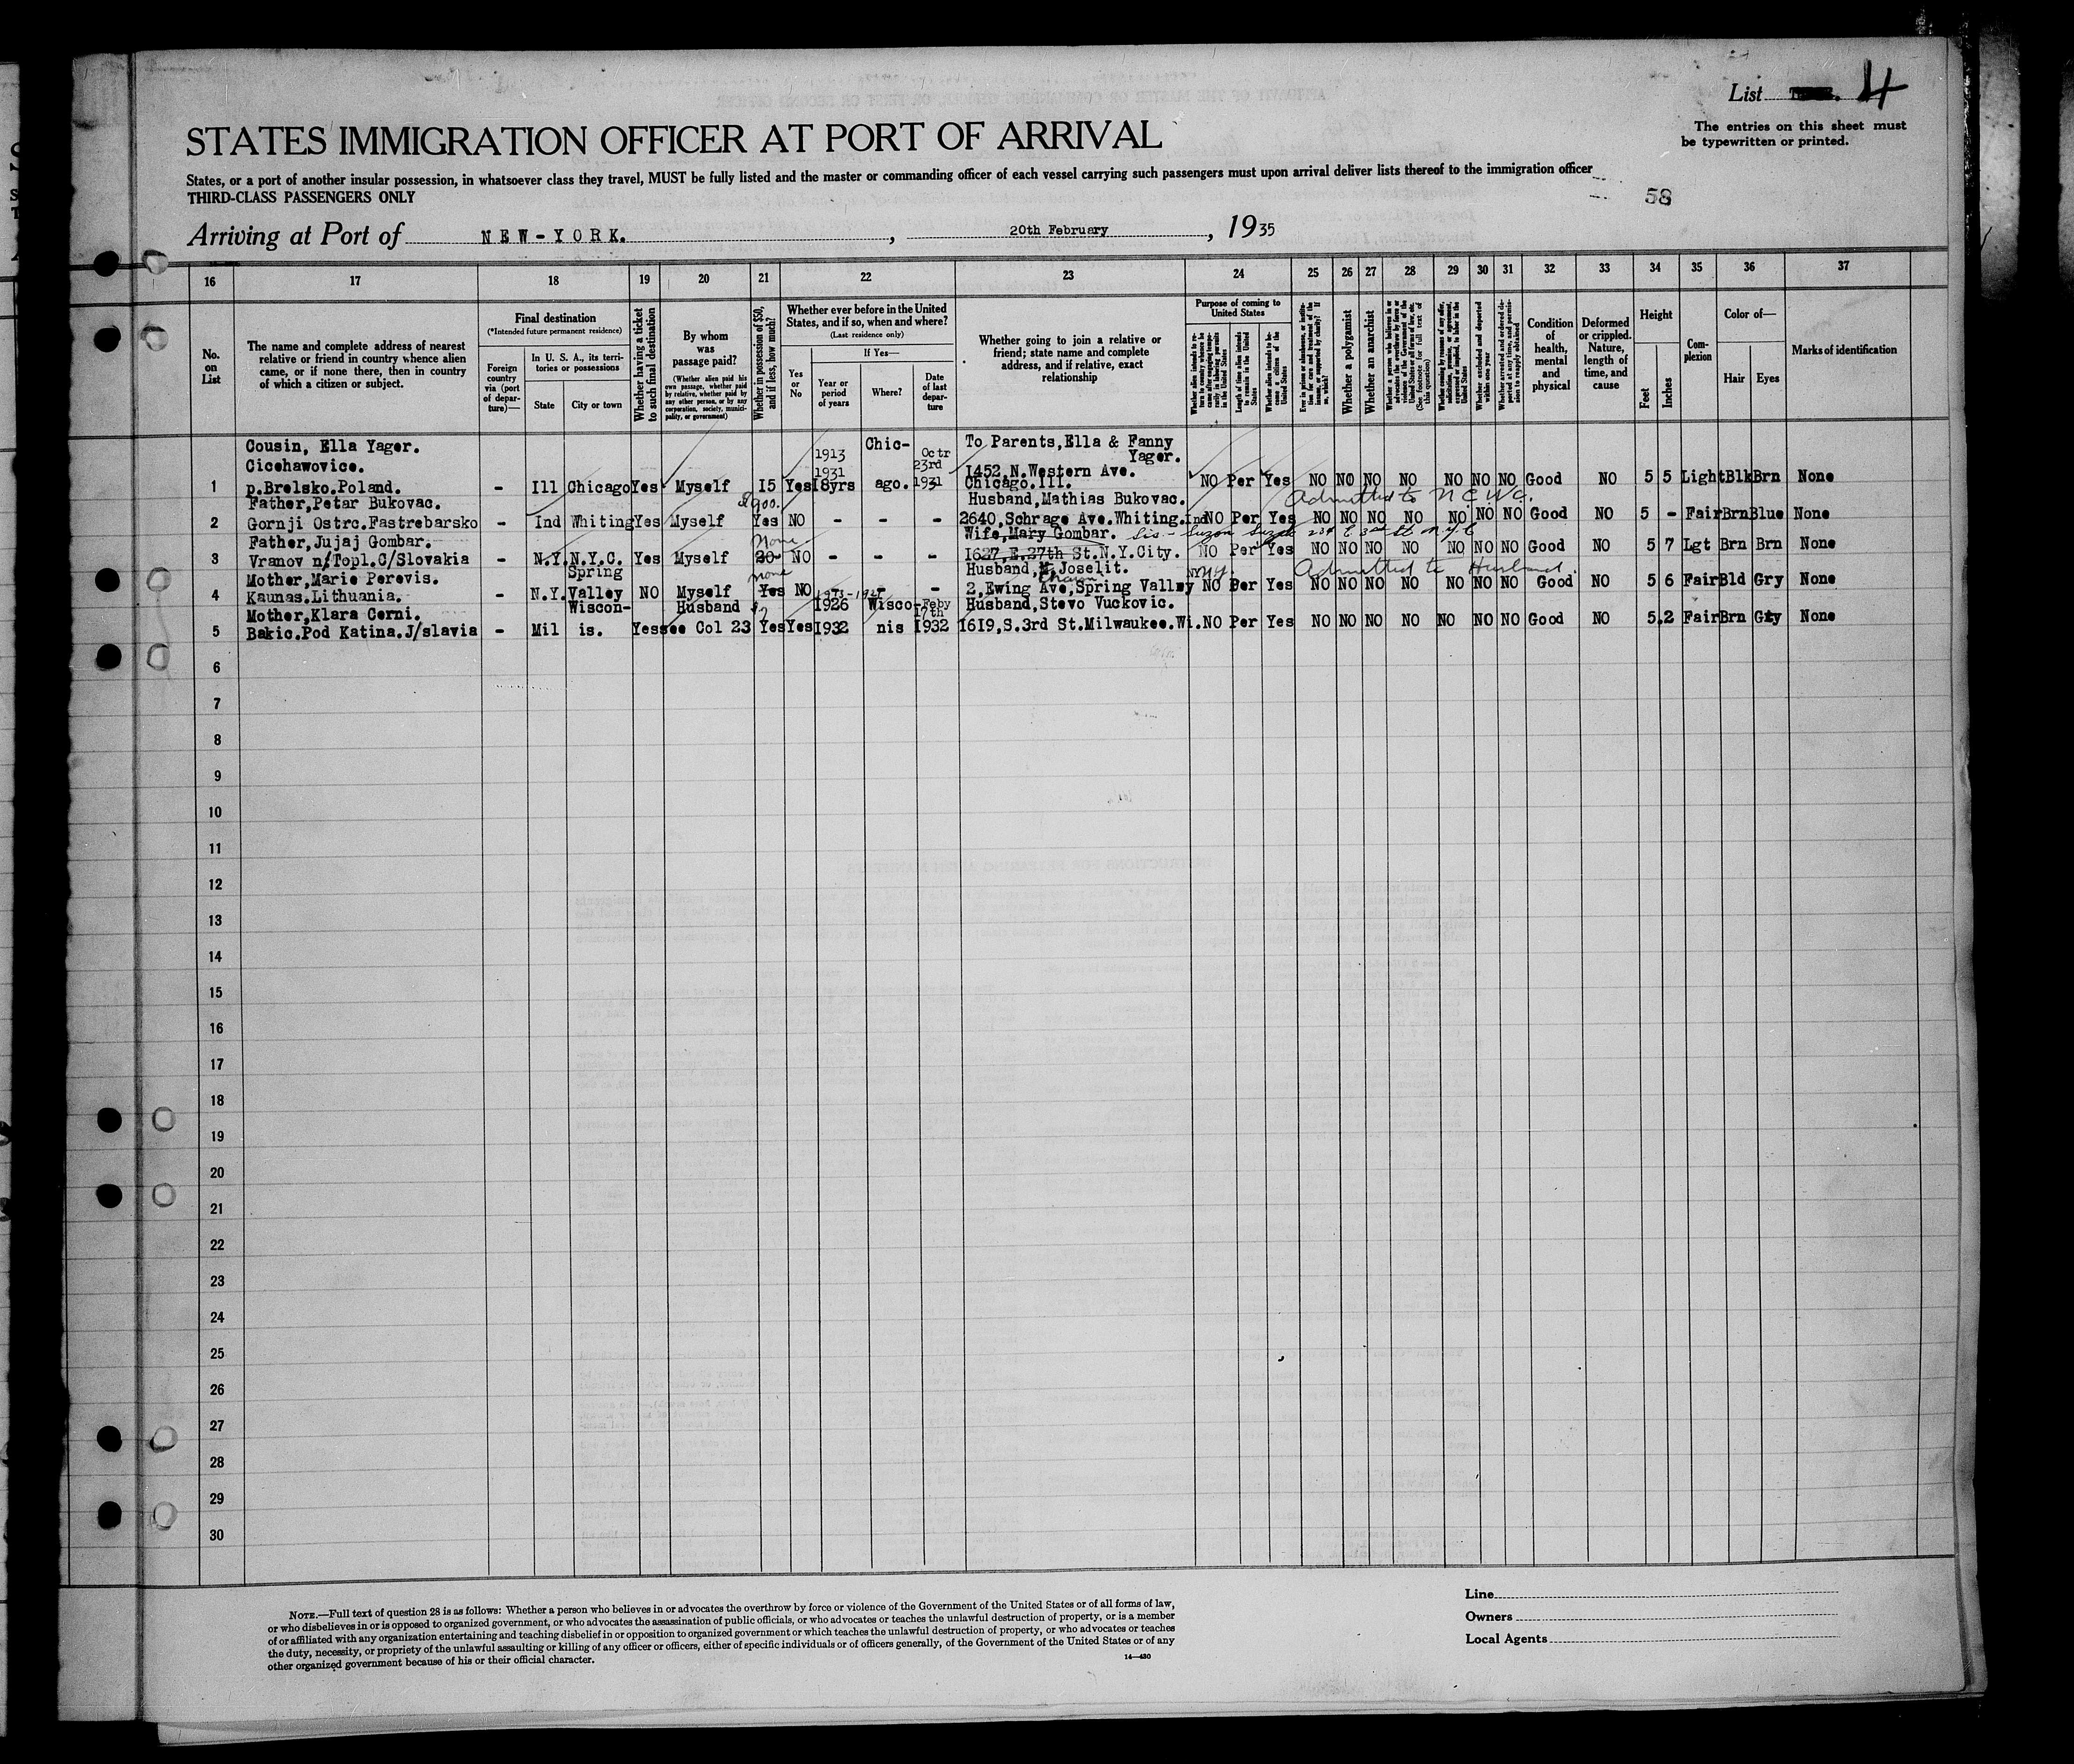 List 4
The entries on this sheet must
be typewritten or printed.
STATES IMMIGRATION OFFICER AT PORT OF ARRIVAL
States, or a port of another insular possession, in whatsoever class they travel, MUST be fully listed and the master or commanding officer of each vessel carrying such passengers must upon arrival deliver lists thereof to the immigration officer
THIRD-CLASS PASSENGERS ONLY
58
Arriving at Port of NEW-YORK. , 20th February , 1935
16 17 18 19 20 21 22 23 24 25 26 27 28 29 30 31 32 33 34 35 36 37
No.
on
List
The name and complete address of nearest
relative or friend in country whence alien
came, or if none there, then in country
of which a citizen or subject.
Final destination
(*Intended future permanent residence)
Foreign
country
via (port
of depar-
ture)—
In U. S. A., its terri-
tories or possessions
State
City or town
Whether having a ticket
to such final destination
By whom
was
passage paid?
(Whether alien paid his
own passage, whether paid
by relative, whether paid by
any other person, or by any
corporation, society, munici-
pality, or government)
Whether in possession of $50,
and if less, how much?
Whether ever before in the United
States, and if so, when and where?
(Last residence only)
Yes
or
No
If Yes—
Year or
period
of years
Where?
Date
of last
depar-
ture
Whether going to join a relative or
friend; state name and complete
address, and if relative, exact
relationship
Purpose of coming to
United States
Length of time alien intends
to remain in the United
States
Whether alien intends to be-
come a citizen of the
United States
Whether a polygamist
Whether an anarchist
Condition
of
health,
mental
and
physical
Deformed
or crippled.
Nature,
length of
time, and
cause
Height
Feet
Inches
Com-
plexion
Color of—
Hair
Eyes
Marks of identification
Cousin, Ella Yager. 1913 Chic- Octr To Parents,Ella & Fanny
Cicehawovice. 1931 23rd Yager.
1452,N.Western Ave.
1 p.Brelsko.Poland. - Ill Chicago Yes Myself 15 Yes 18yrs ago. 1931 Chicago.Ill. NO Per Yes NO NO NO NO NO NO NO Good NO 5 5 Light Blk Brn None
Father,Petar Bukovac. $900. Husband,Mathias Bukovac. Admitted to N.C.W.C.
2 Gornji Ostrc.Fastrebarsko - Ind Whiting Yes Myself Yes NO - - - 2640,Schrage Ave.Whiting.Ind NO Per Yes NO NO NO NO NO NO NO Good NO 5 - Fair Brn Blue None
Father,Jujaj Gombar. None Wife,Mary Gombar. Sis - 234 E 3rd St N.Y.C
3 Vranov n/Topl.C/Slovakia - N.Y. N.Y.C. Yes Myself 20- NO - - - 1627,E.27th St.N.Y.City. NO Per Yes NO NO NO NO NO NO NO Good NO 5 7 Lgt Brn Brn None
Mother,Marie Perevis. Spring none Husband, Joselit. N.Y. Admitted to Husband.
4 Kaunas.Lithuania. - N.Y. Valley NO Myself Yes NO - - 2,Ewing Ave,Spring Valley NO Per Yes NO NO NO NO NO NO NO Good NO 5 6 Fair Bld Gry None
Mother,Klara Cerni. Wiscon- Husband 1926 Wisco- Feby 17th Husband,Stevo Vuckovic.
5 Bakic.Pod Katina.J/slavia - Mil is. Yes see Col 23 Yes Yes 1932 nis 1932 1619,S.3rd St.Milwaukee.Wi. NO Per Yes NO NO NO NO NO NO NO Good NO 5.2 Fair Brn Gry None
6
7
8
9
10
11
12
13
14
15
16
17
18
19
20
21
22
23
24
25
26
27
28
29
30
NOTE.—Full text of question 28 is as follows: Whether a person who believes in or advocates the overthrow by force or violence of the Government of the United States or of all forms of law,
or who disbelieves in or is opposed to organized government, or who advocates the assassination of public officials, or who advocates or teaches the unlawful destruction of property, or is a member
of or affiliated with any organization entertaining and teaching disbelief in or opposition to organized government or which teaches the unlawful destruction of property, or who advocates or teaches
the duty, necessity, or propriety of the unlawful assaulting or killing of any officer or officers, either of specific individuals or of officers generally, of the Government of the United States or of any
other organized government because of his or their official character.
14—430
Line
Owners
Local Agents